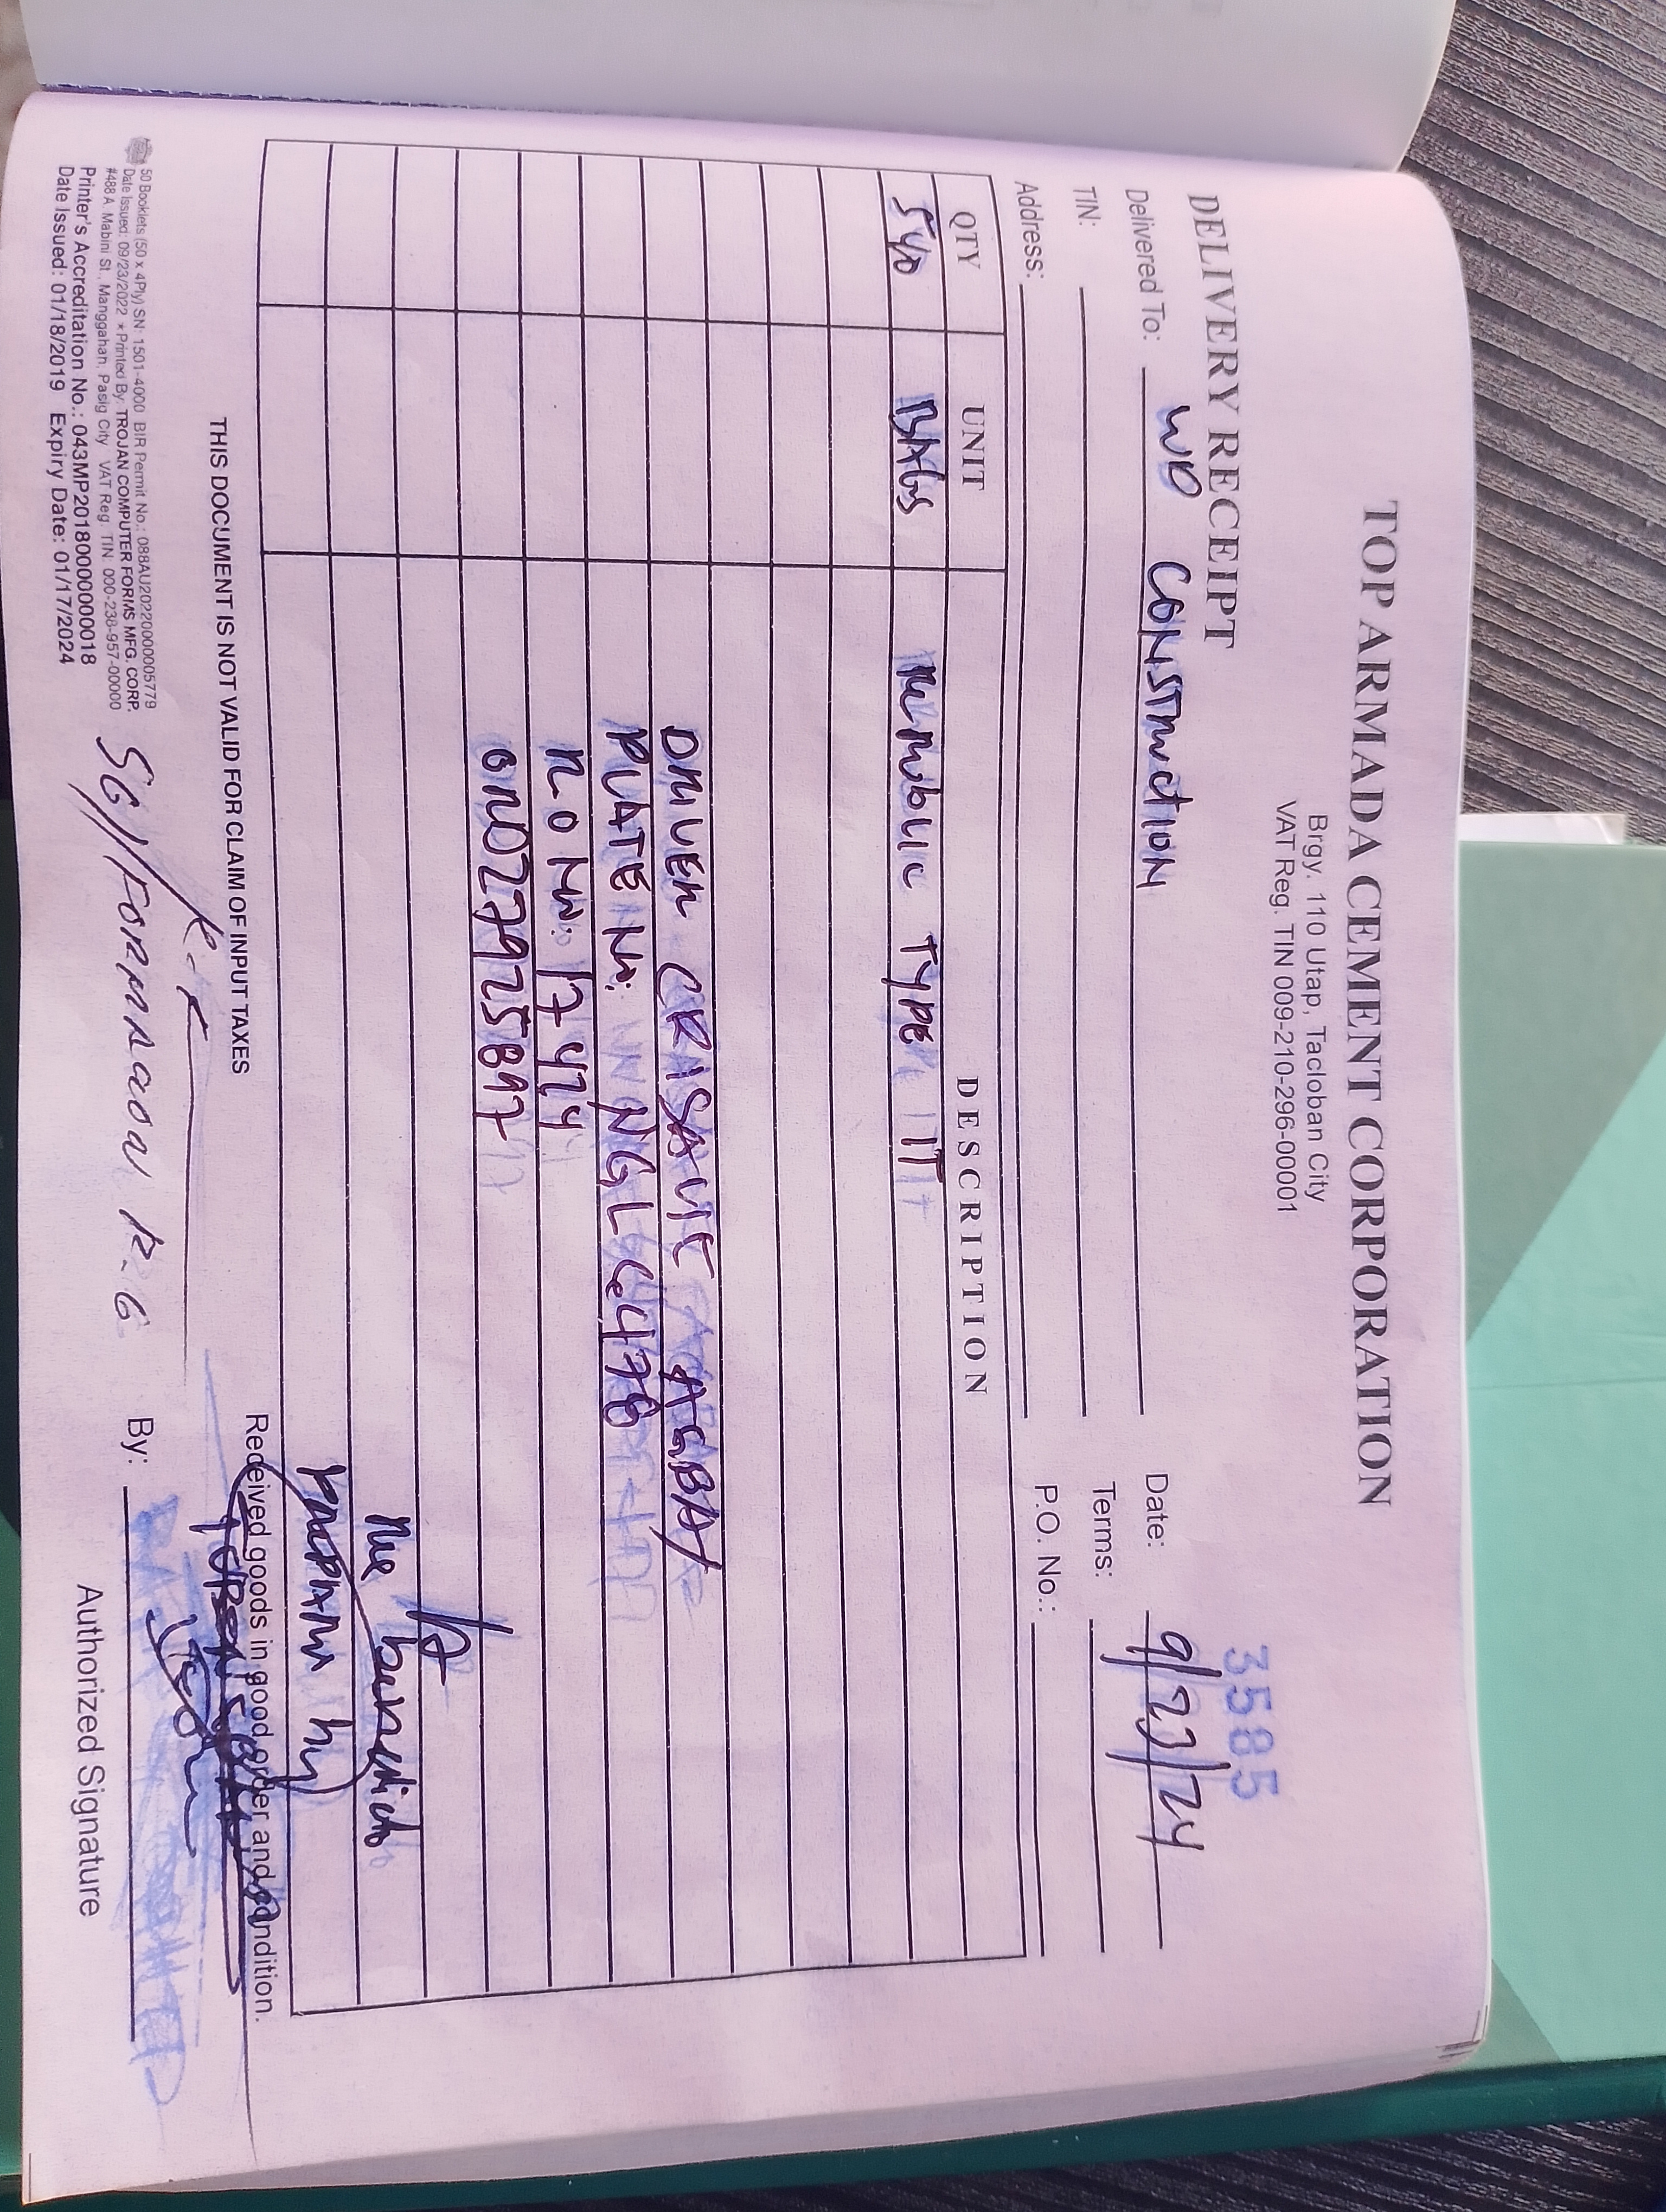 TOP ARMADA CEMENT CORPORATION
Brgy. 110 Utap, Tacloban City
VAT Reg. TIN 009-210-296-00001
3585
DELIVERY RECEIPT
Delivered To: WD CONSTRUCTION Date: 9/23/24
TIN: Terms:
Address: P.O. No.:
QTY UNIT DESCRIPTION
540 BAGS REPUBLIC TYPE IT
DRIVER CRISAVIE AGBAY
PLATE No: NGL
R O No: 17424
ORD27925897
THIS DOCUMENT IS NOT VALID FOR CLAIM OF INPUT TAXES
Received goods in good order and condition.
50 Booklets (50 x 4Ply) SN: 1501-4000 BIR Permit No.: 088AU20220000005779
Date Issued: 09/23/2022 * Printed By: TROJAN COMPUTER FORMS MFG. CORP.
#488 A. Mabini St., Manggahan, Pasig City VAT Reg. TIN 000-238-957-00000
Printer's Accreditation No.: 043MP20180000000018
Date Issued: 01/18/2019 Expiry Date: 01/17/2024
SG/ R.G
By:
Authorized Signature